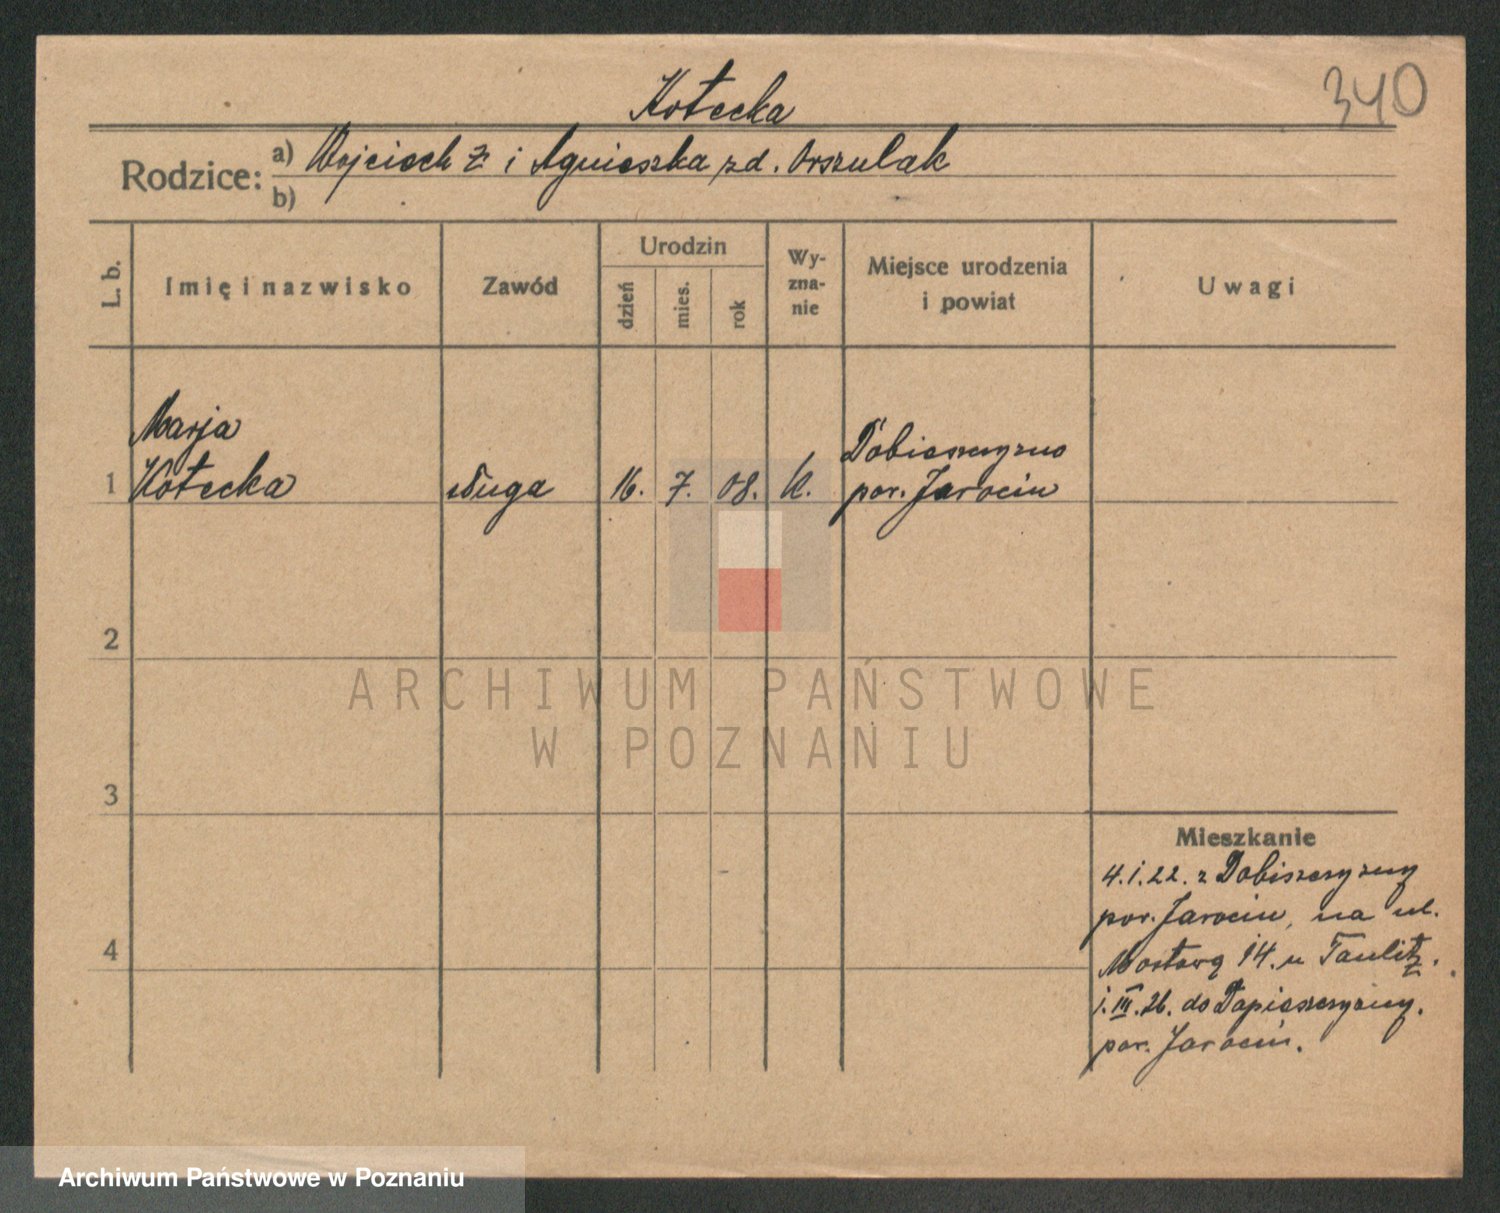 340
Kotecka
Rodzice:
a) Wojciech ż. i Agnieszka zd. Orszulak
b)
L. b.
Imię i nazwisko
Zawód
Urodzin
dzień
mies.
rok
Wy-
zna-
nie
Miejsce urodzenia
i powiat
Uwagi
Marja
1 Kotecka sługa 16. 7. 08. k.
Dobieszczyzno
pow. Jarocin
2
3
4
Mieszkanie
4.1.22. z Dobieszczyzny
pow. Jarocin, na ul.
Mostową 14. u Taulitz.
1.III.26. do Dapieszczyzny.
pow. Jarocin.
ARCHIWUM PAŃSTWOWE
W POZNANIU
Archiwum Państwowe w Poznaniu